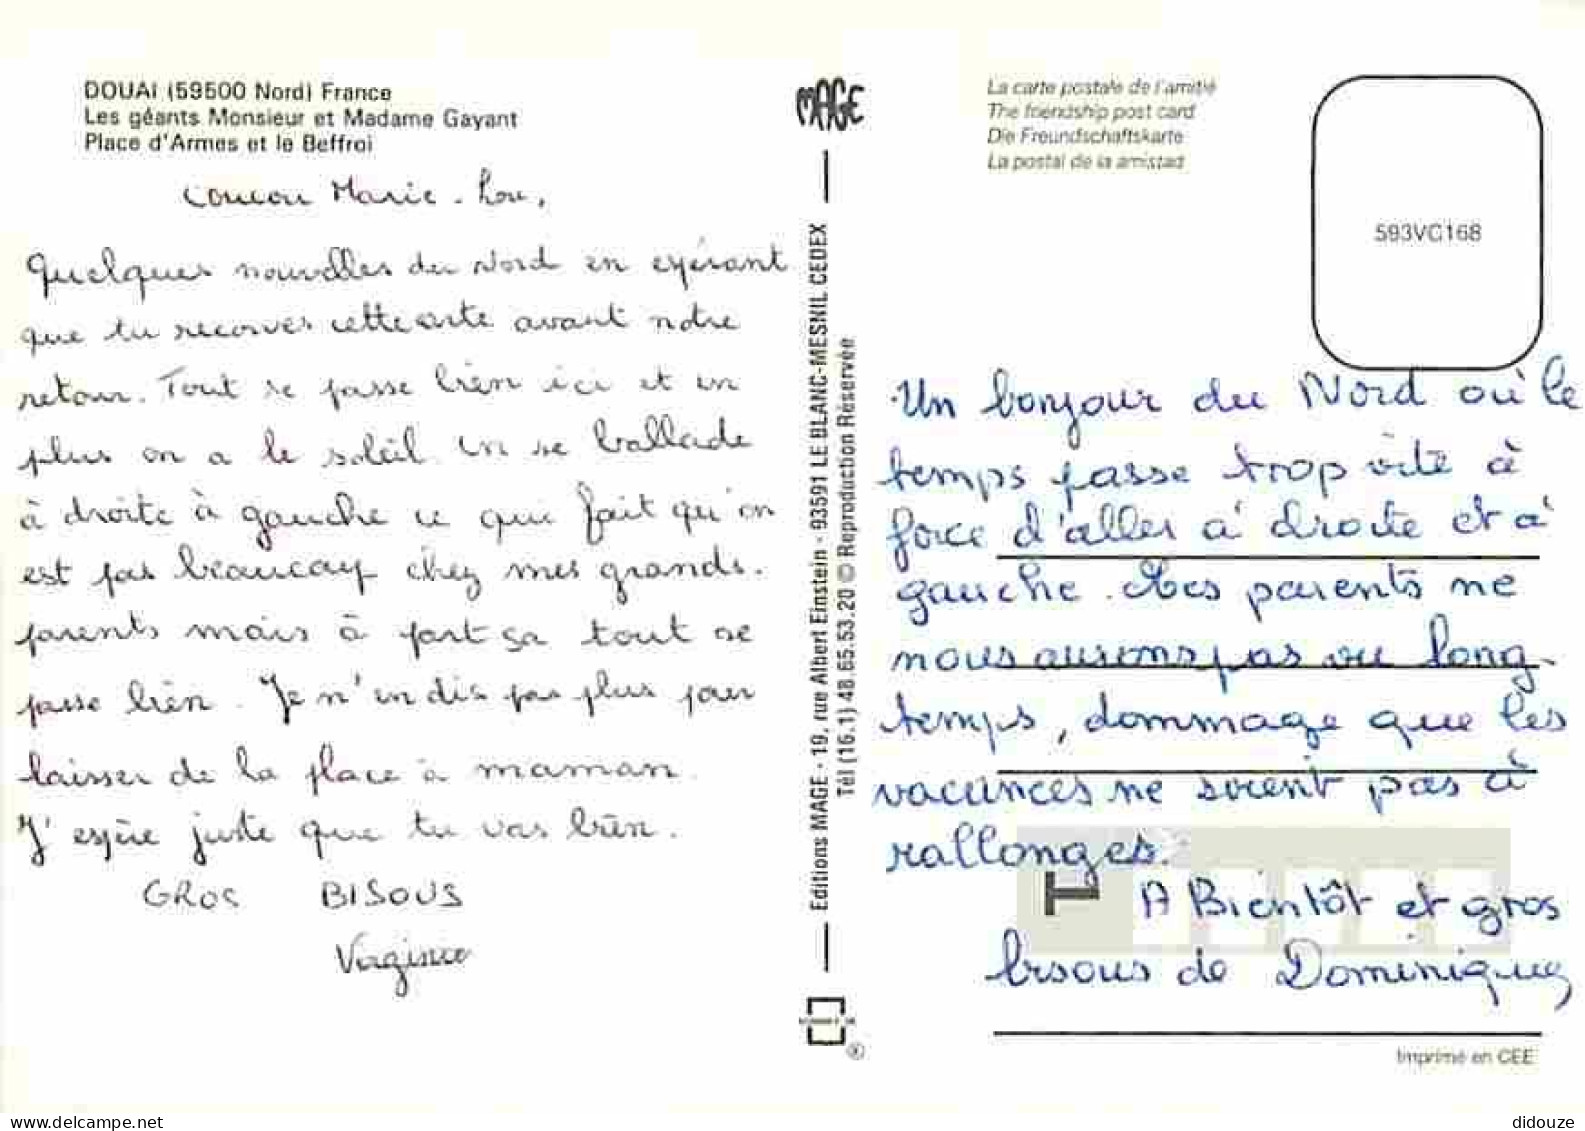 DOUAI (59500 Nord) France
Les géants Monsieur et Madame Gayant
Place d'Armes et le Beffroi
Coucou Marie-Lou,
Quelques nouvelles du Nord en espérant
que tu recoives cette carte avant notre
retour. Tout se passe bien ici et en
plus on a le soleil. On se ballade
à droite à gauche ce qui fait qu'on
est pas beaucoup chez mes grands.
parents mais à part ça tout se
passe bien. Je n'en dis pas plus pour
laisser de la place à maman.
J'espère juste que tu vas bien.
GROS BISOUS
Virginie
MAGE
Editions MAGE - 19, rue Albert Einstein - 93591 LE BLANC-MESNIL CEDEX
Tél (16.1) 48.65.53.20 © Reproduction Réservée
La carte postale de l'amitié
The friendship post card
Die Freundschaftskarte
La postal de la amistad
593VC168
Un bonjour du Nord où le
temps passe trop vite à
force d'aller à droite et à
gauche. Mes parents ne
nous aurons pas vu long.
temps, dommage que les
vacances ne soient pas à
rallonges.
T
A Bientôt et gros
bisous de Dominique
Imprimé en CEE
www.delcampe.net
didouze